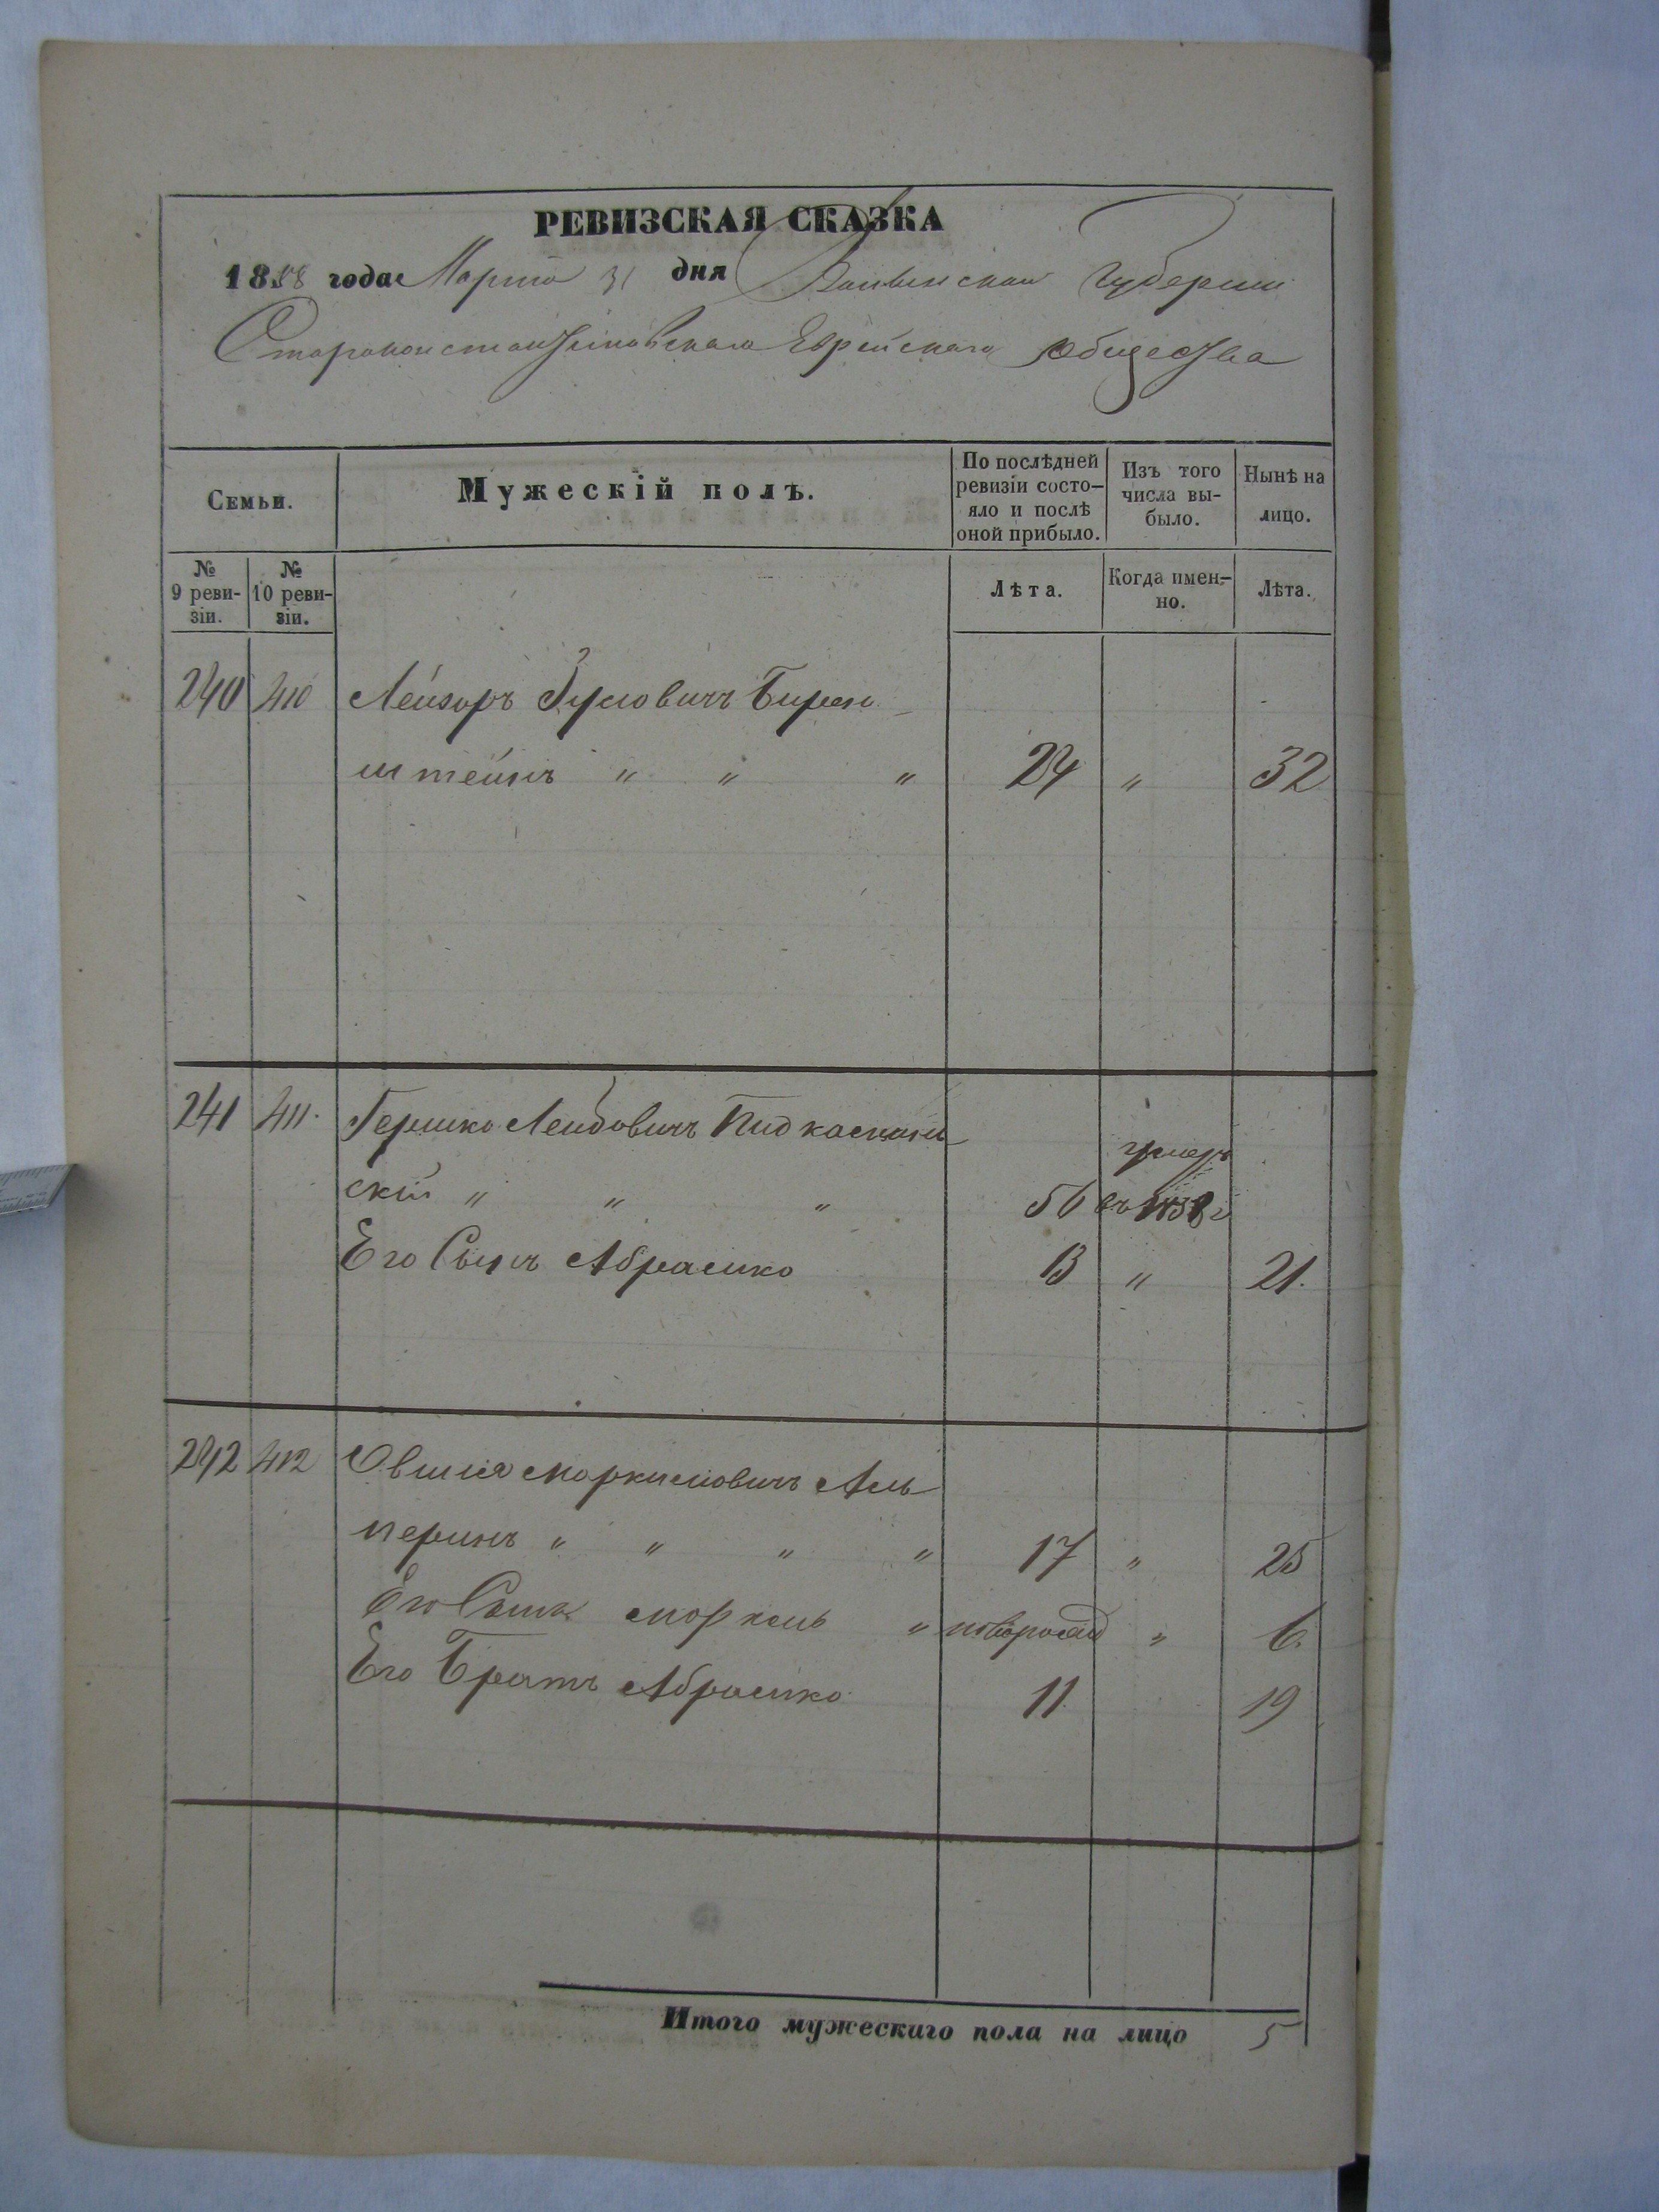 РЕВИЗСКАЯ СКАЗКА
1858 года Марта 31 дня Волынской Губернии
Староконстантиновскаго Еврейскаго Общества
Семьи.
Мужескій полъ.
По послѣдней ревизіи состо-
яло и послѣ оной прибыло.
Изъ того числа вы-
было.
Нынѣ на лицо.
№ 9 реви-
зіи.
№ 10 реви-
зіи.
Лѣта.
Когда имен-
но.
Лѣта.
240 410 Лейзоръ Бирен
штейнъ " " " 24 " 32
241 411. Гершко Лейбовичъ
умеръ
скій " " " 56 въ г
Его Сынъ Абрамко 13 " 21.
242 412 Овшія Моркусовичъ Аль
перинъ " " " " 17 " 25
Его Сынъ " новорожд " 6.
Его Братъ Абрамко 11. 19
Итого мужескаго пола на лицо 5